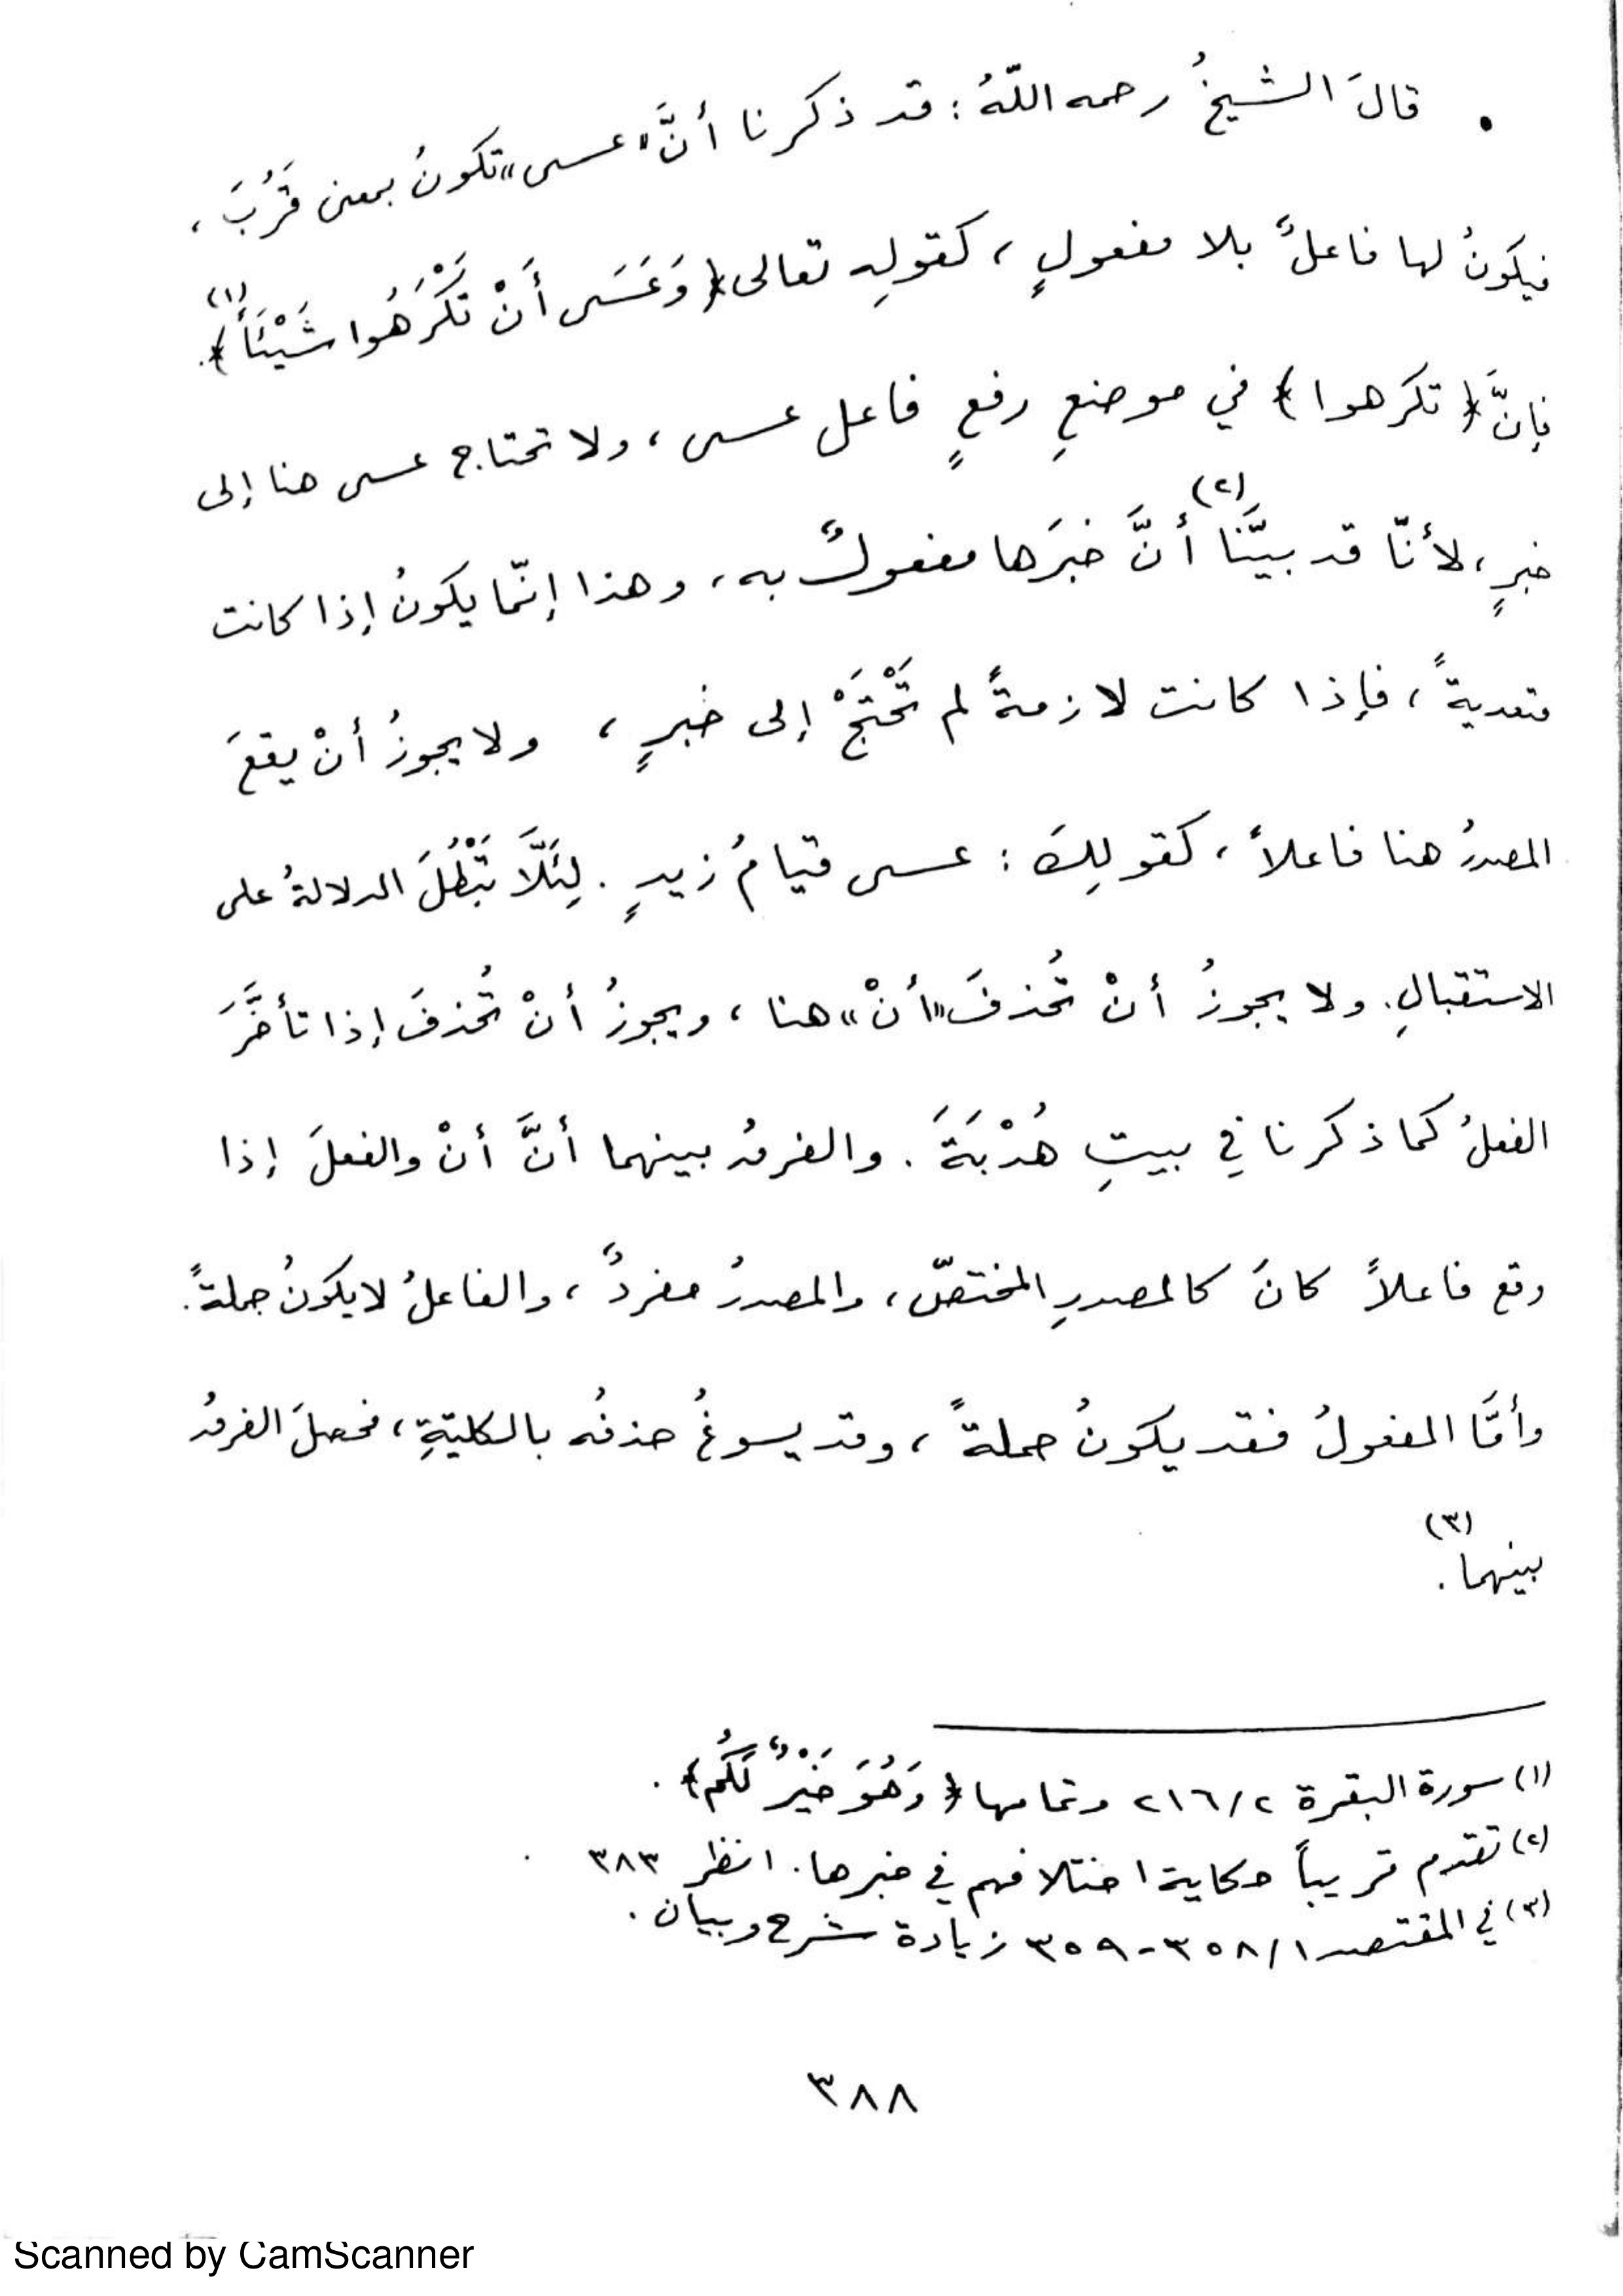 • قالَ الشيخُ رحمه اللّهُ : قد ذكرنا أنَّ «عسى» تكونُ بمعنى قَرُبَ ،
فيكونُ لها فاعلٌ بلا مفعولٍ ، كقولِه تعالى ﴿ وَعَسَى أَنْ تَكْرَهُوا شَيْئَاً ﴾(١).
فإنَّ ﴿ تكرهوا ﴾ في موضعِ رفعٍ فاعل عسى ، ولا تحتاج عسى هنا إلى
خبرٍ ، لأنّا قد بيَّنّا(٢) أنَّ خبرَها مفعولٌ به ، وهذا إنّما يكونُ إذا كانت
متعديةً ، فإذا كانت لازمةً لم تَحْتَجْ إلى خبرٍ ، ولا يجوزُ أنْ يقعَ
المصدرُ هنا فاعلاً ، كقولِكَ : عسى قيامُ زيدٍ . لِئَلَّا تَبْطُلَ الدلالةُ على
الاستقبالِ . ولا يجوزُ أنْ تُحذفَ «أنْ» هنا ، ويجوزُ أنْ تُحذفَ إذا تأخَّرَ
الفعلُ كما ذكرنا في بيتِ هُدْبَةَ . والفرقُ بينهما أنَّ أنْ والفعلَ إذا
وقع فاعلاً كانَ كالمصدرِ المختصّ ، والمصدرُ مفردٌ ، والفاعلُ لا يكونُ جملةً .
وأمَّا المفعولُ فقد يكونُ جملةً ، وقد يسوغُ حذفُه بالكليّةِ ، فحصلَ الفرقُ
بينهما(٣) .
(١) سورة البقرة ٢/ ٢١٦ وتمامها ﴿ وَهُوَ خَيْرٌ لَّكُم ﴾ .
(٢) تقدم قريباً حكاية اختلافهم في خبرها . انظر ٣٨٣
(٣) في المقتصد ١/ ٣٥٨-٣٥٩ زيادة شرح وبيان .
٣٨٨
Scanned by CamScanner